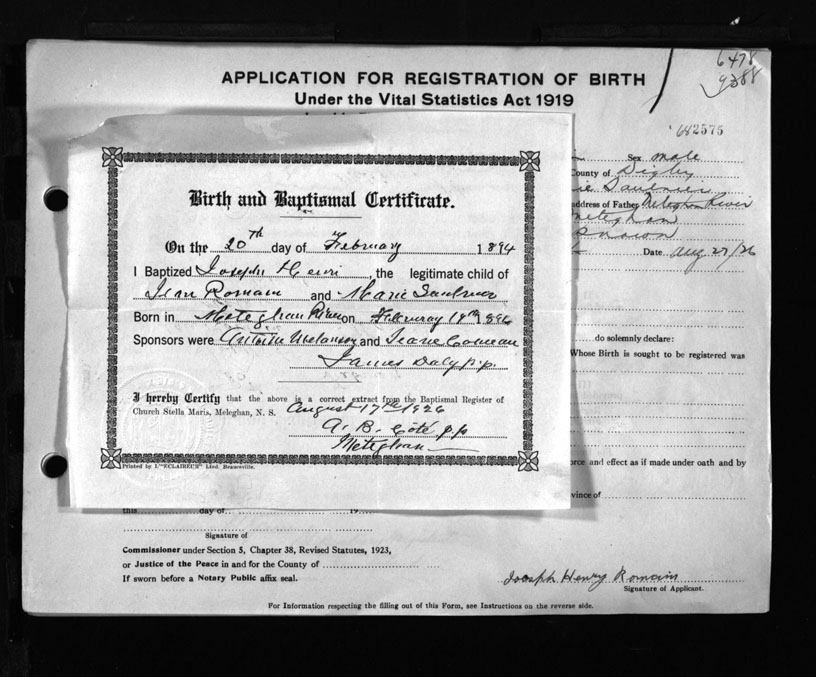 6478
9388
APPLICATION FOR REGISTRATION OF BIRTH
Under the Vital Statistics Act 1919
682575
Sex male
County of Digby
ie Saulnier
address of Father Meteghan River
Meteghan
Date Aug 27/26
Birth and Baptismal Certificate.
On the 20th day of February 1894
I Baptized Joseph Henri, the legitimate child of
Jean Romain and Marie Saulnier
Born in Meteghan River on February 18th 1894
Sponsors were Antoine Melanson and Jeane Comeau
James Daly p.p.
I hereby Certify that the above is a correct extract from the Baptismal Register of
Church Stella Maris, Meleghan, N. S. August 17th 1926
A. B. Côté p.p
Meteghan
Printed by L'"ECLAIREUR" Lted. Beauceville.
do solemnly declare:
Whose Birth is sought to be registered was
orce and effect as if made under oath and by
vince of
this day of 19
Signature of
Commissioner under Section 5, Chapter 38, Revised Statutes, 1923,
or Justice of the Peace in and for the County of
If sworn before a Notary Public affix seal.
Joseph Henry Romain
Signature of Applicant.
For Information respecting the filling out of this Form, see Instructions on the reverse side.